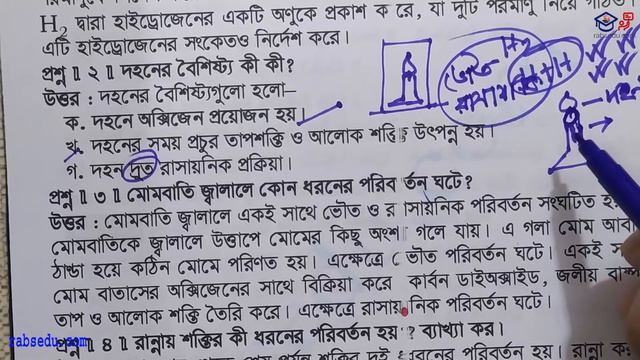 H₂ দ্বারা হাইড্রোজেনের একটি অণুকে প্রকাশ ক রে, যা দুটি পরমাণু নিয়ে গঠিত।
এটি হাইড্রোজেনের সংকেতও নির্দেশ করে।
প্রশ্ন ॥ ২ ॥ দহনের বৈশিষ্ট্য কী কী?
উত্তর : দহনের বৈশিষ্ট্যগুলো হলো—
ক. দহনে অক্সিজেন প্রয়োজন হয়।
খ. দহনের সময় প্রচুর তাপশক্তি ও আলোক শক্তি উৎপন্ন হয়।
গ. দহন দ্রুত রাসায়নিক প্রক্রিয়া।
প্রশ্ন ॥ ৩ ॥ মোমবাতি জ্বালালে কোন ধরনের পরিব র্তন ঘটে?
উত্তর : মোমবাতি জ্বালালে একই সাথে ভৌত ও র াসায়নিক পরিবর্তন সংঘটিত হ
মোমবাতিকে জ্বালালে উত্তাপে মোমের কিছু অংশ গলে যায়। এ গলা মোম আবা
ঠান্ডা হয়ে কঠিন মোমে পরিণত হয়। এক্ষেত্রে ভৌত পরিবর্তন ঘটে। একই স
মোম বাতাসের অক্সিজেনের সাথে বিক্রিয়া করে কার্বন ডাইঅক্সাইড, জলীয় বাষ্প
তাপ ও আলোক শক্তি তৈরি করে। এক্ষেত্রে রাসায়নিক পরিবর্তন ঘটে।
প্রশ্ন ॥ ৪ ॥ রান্নায় শক্তির কী ধরনের পরিবর্তন হয় ? ব্যাখ্যা কর।
ভৌত
H₂
H+H
rabsedu.com